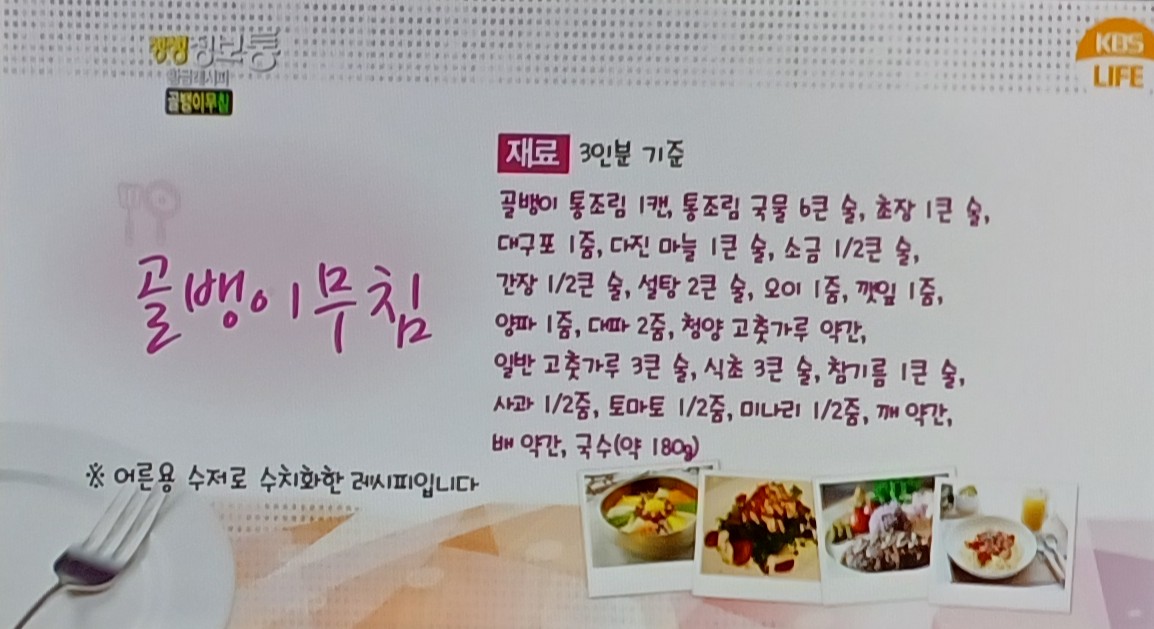 생생정보통
황금레시피
골뱅이무침
KBS
LIFE
재료 3인분 기준
골뱅이 통조림 1캔, 통조림 국물 6큰 술, 초장 1큰 술,
대구포 1줌, 다진 마늘 1큰 술, 소금 1/2큰 술,
간장 1/2큰 술, 설탕 2큰 술, 오이 1줌, 깻잎 1줌,
양파 1줌, 대파 2줌, 청양 고춧가루 약간,
일반 고춧가루 3큰 술, 식초 3큰 술, 참기름 1큰 술,
사과 1/2줌, 토마토 1/2줌, 미나리 1/2줌, 깨 약간,
배 약간, 국수(약 180g)
골뱅이무침
※ 어른용 수저로 수치화한 레시피입니다